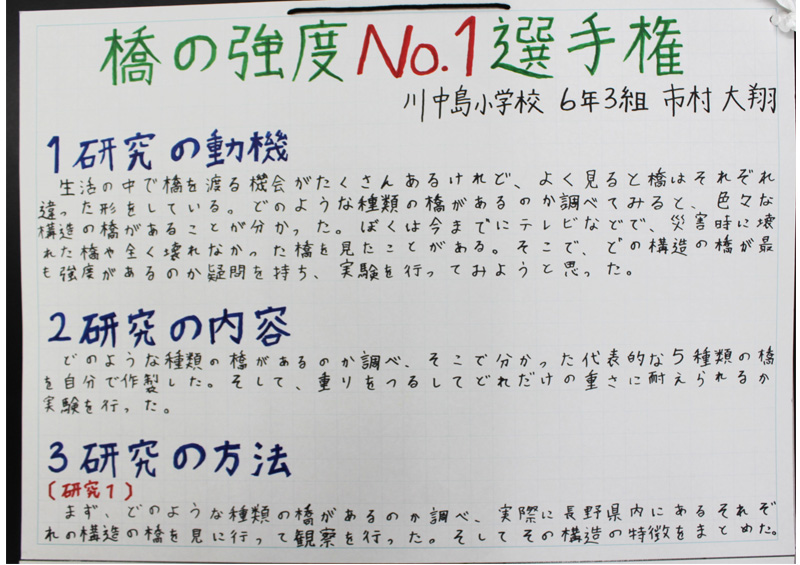 橋の強度No.1選手権
川中島小学校 6年3組 市村 大翔
1 研究の動機
生活の中で橋を渡る機会がたくさんあるけれど、よく見ると橋はそれぞれ
違った形をしている。どのような種類の橋があるのか調べてみると、色々な
構造の橋があることが分かった。ぼくは今までにテレビなどで、災害時に壊
れた橋や全く壊れなかった橋を見たことがある。そこで、どの構造の橋が最
も強度があるのか疑問を持ち、実験を行ってみようと思った。
2 研究の内容
どのような種類の橋があるのか調べ、そこで分かった代表的な5種類の橋
を自分で作製した。そして、重りをつるしてどれだけの重さに耐えられるか
実験を行った。
3 研究の方法
(研究1)
まず、どのような種類の橋があるのか調べ、実際に長野県内にあるそれぞ
れの構造の橋を見に行って観察を行った。そしてその構造の特徴をまとめた。